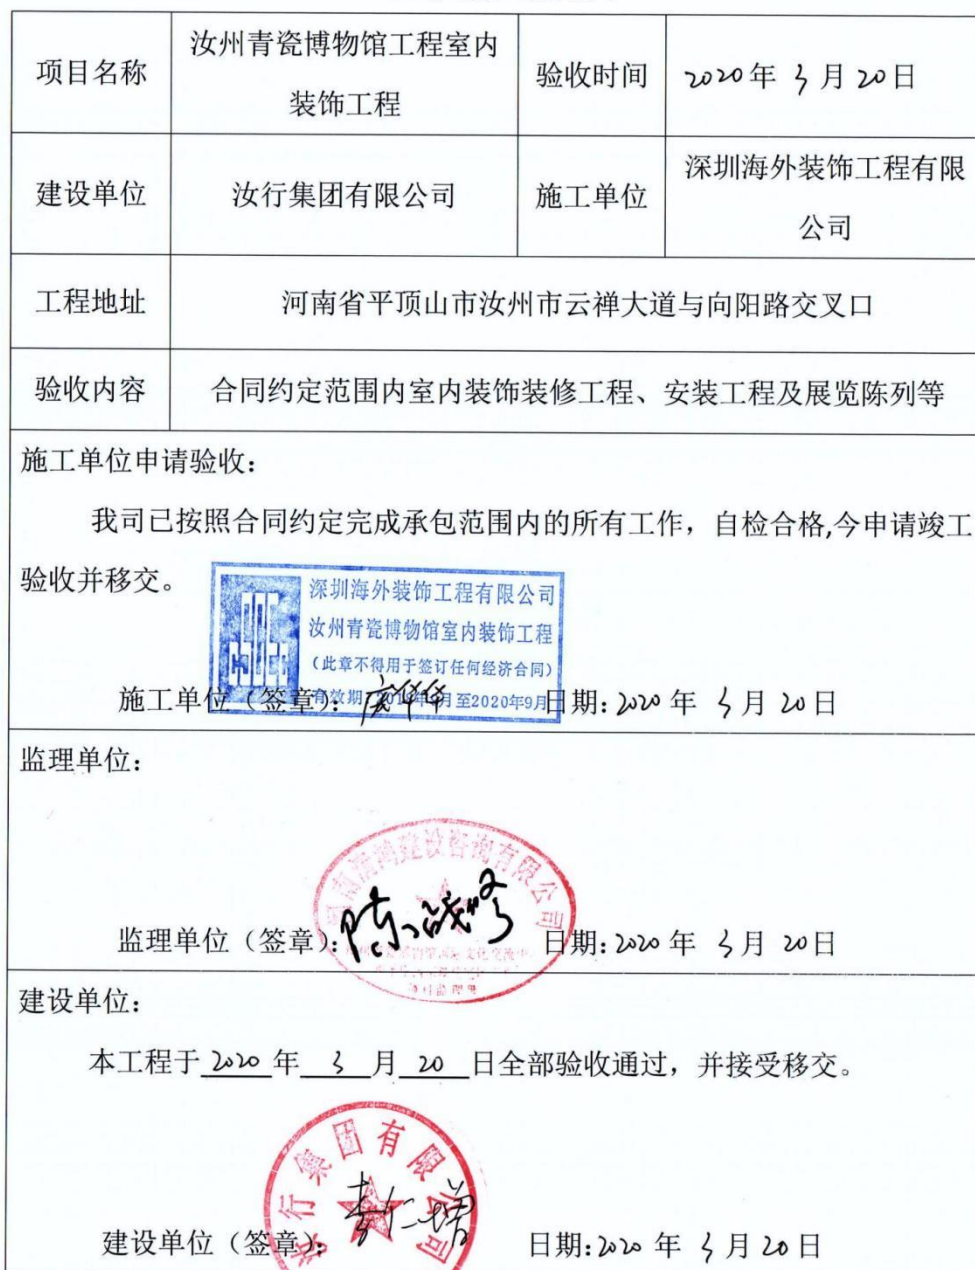 项目名称
汝州青瓷博物馆工程室内
装饰工程
验收时间
2020年 3月 20日
建设单位
汝行集团有限公司
施工单位
深圳海外装饰工程有限
公司
工程地址
河南省平顶山市汝州市云禅大道与向阳路交叉口
验收内容
合同约定范围内室内装饰装修工程、安装工程及展览陈列等
施工单位申请验收：
我司已按照合同约定完成承包范围内的所有工作，自检合格,今申请竣工
验收并移交。
深圳海外装饰工程有限公司
汝州青瓷博物馆室内装饰工程
（此章不得用于签订任何经济合同）
月至2020年9月
施工单位（签章）： 日期:2020 年 3月 20日
监理单位：
建设咨询有限公司
监理单位（签章）： 日期:2020 年 3月 20日
建设单位：
本工程于 2020 年 3 月 20 日全部验收通过，并接受移交。
汝行集团有限公司
建设单位（签章）： 李仁增 日期:2020 年 3月 20日